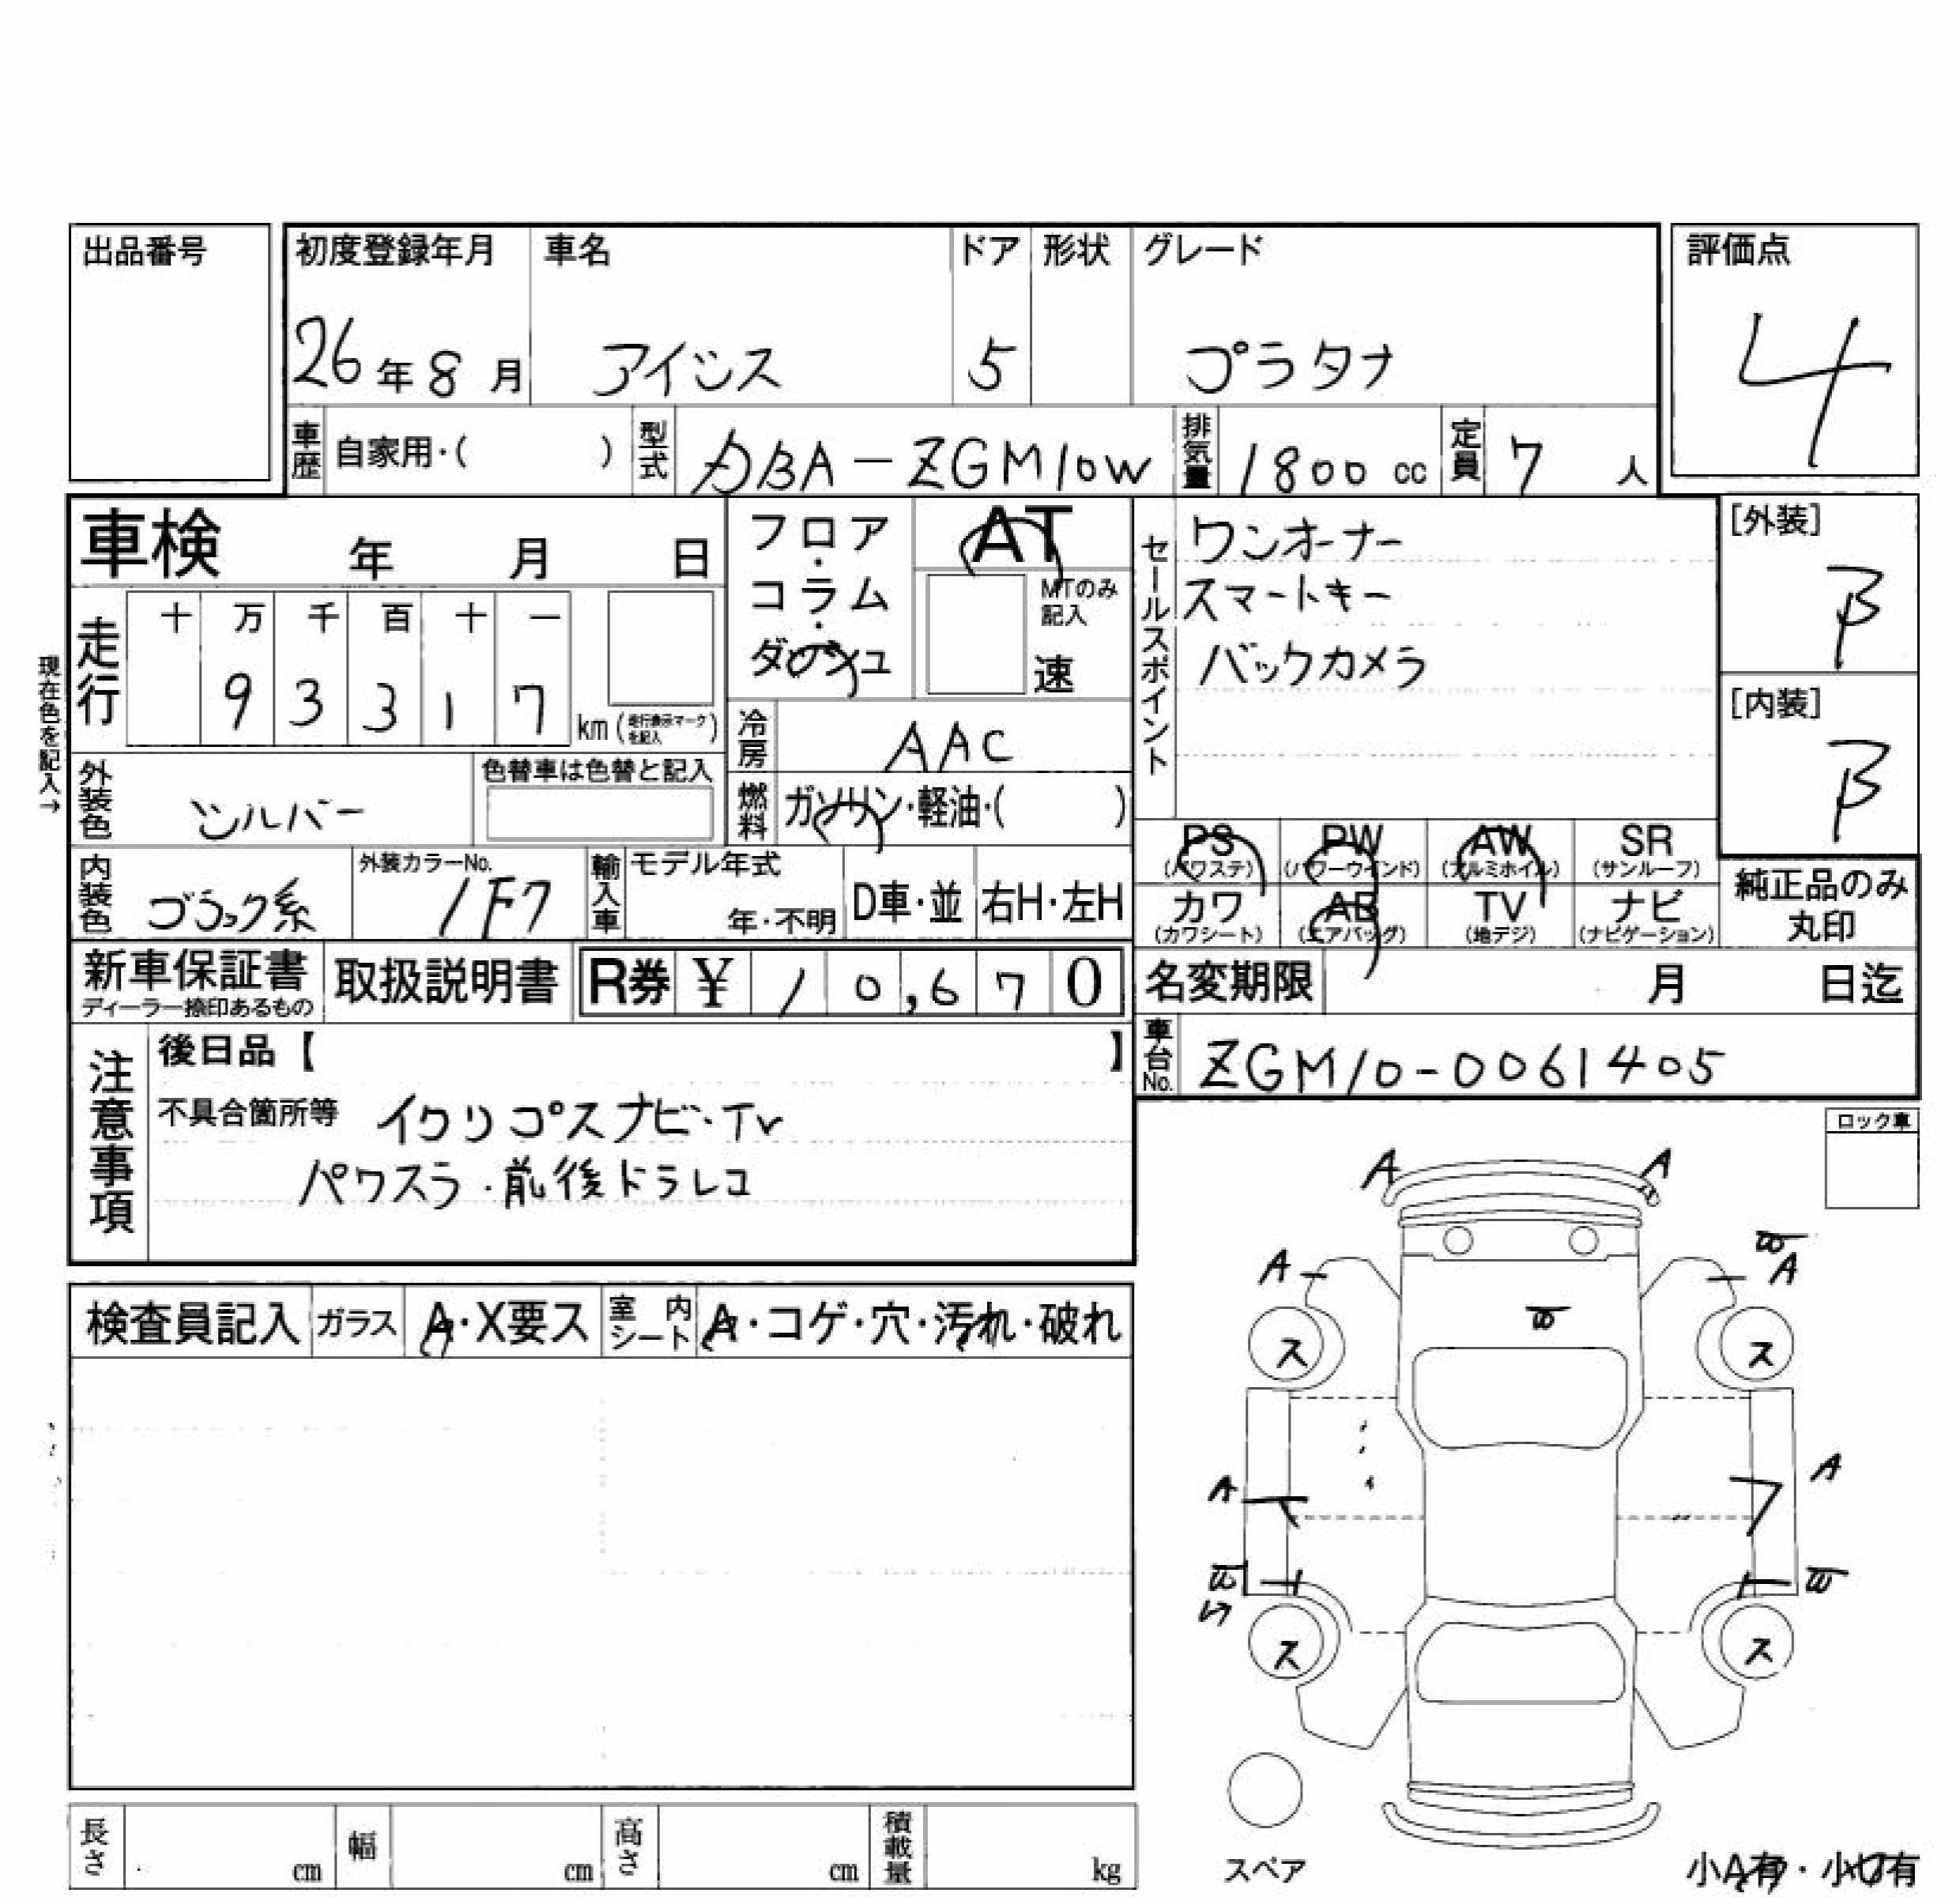 出品番号
初度登録年月 車名 ドア 形状 グレード
評価点
26年8月 アイシス 5 プラタナ
4
車歴 自家用・( ) 型式 DBA-ZGM10W 排気量 1800 cc 定員 7 人
車検 年 月 日
フロア・コラム・ダッシュ
AT
MTのみ記入
速
セールスポイント
ワンオーナー
スマートキー
バックカメラ
[外装]
B
[内装]
B
現在色を記入→
走行 十 万 千 百 十 一
9 3 3 1 7 km (走行表示マークを記入)
冷房 AAC
外装色 シルバー 色替車は色替と記入
燃料 ガソリン・軽油・( )
PS (パワステ) PW (パワーウインド) AW (アルミホイル) SR (サンルーフ)
カワ (カワシート) AB (エアバッグ) TV (地デジ) ナビ (ナビゲーション)
純正品のみ丸印
内装色 ブラック系 外装カラーNo. 1F7 輸入車 モデル年式 年・不明 D車・並 右H・左H
新車保証書 ディーラー捺印あるもの 取扱説明書 R券 ¥ 10,670
名変期限 月 日迄
車台No. ZGM10-0061405
注意事項
後日品【 】
不具合箇所等 イクリプスナビ・TV
パワスラ・前後ドラレコ
ロック車
検査員記入 ガラス A・X要ス 室内シート A・コゲ・穴・汚れ・破れ
A A
A A
ス ス
A A
ス ス
スペア
長さ cm 幅 cm 高さ cm 積載量 kg
小A有・小U有